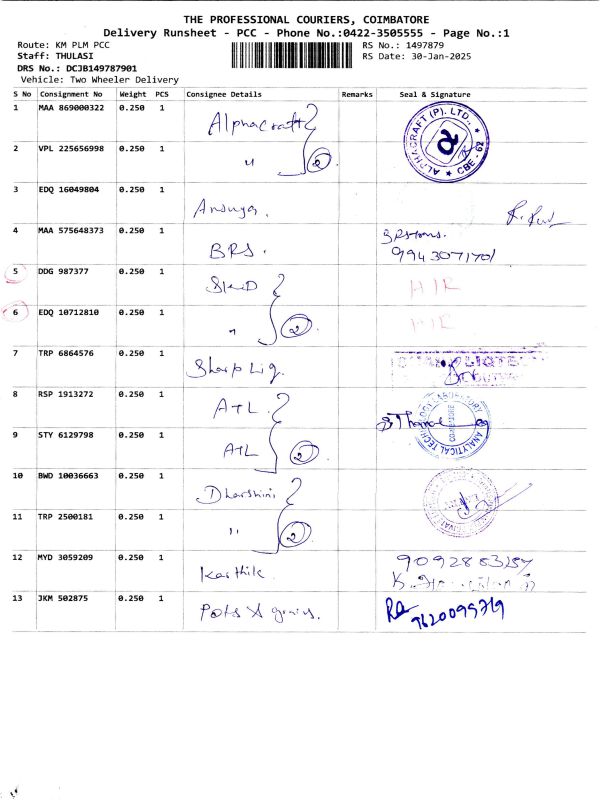 THE PROFESSIONAL COURIERS, COIMBATORE
Delivery Runsheet - PCC - Phone No.:0422-3505555 - Page No.:1
Route: KM PLM PCC
RS No.: 1497879
Staff: THULASI
RS Date: 30-Jan-2025
DRS No.: DCJB149787901
Vehicle: Two Wheeler Delivery
S No Consignment No Weight PCS Consignee Details Remarks Seal & Signature
1 MAA 869000322 0.250 1 Alphacraft ALPHACRAFT (P). LTD., ★ CBE - 62 ★
2 VPL 225656998 0.250 1 " 2
3 EDQ 16049804 0.250 1 Ansuya.
4 MAA 575648373 0.250 1 BRS. 9943071701
5 DDG 987377 0.250 1 SKD
6 EDQ 10712810 0.250 1 " 2
7 TRP 6864576 0.250 1 Sharp Lig.
8 RSP 1913272 0.250 1 ATL ANALYTICAL TECH LABORATORY COIMBATORE
9 STY 6129798 0.250 1 ATL 2
10 BWD 10036663 0.250 1 Dharshini
11 TRP 2500181 0.250 1 " 2
12 MYD 3059209 0.250 1 Karthik.
13 JKM 502875 0.250 1 Pots & grains.